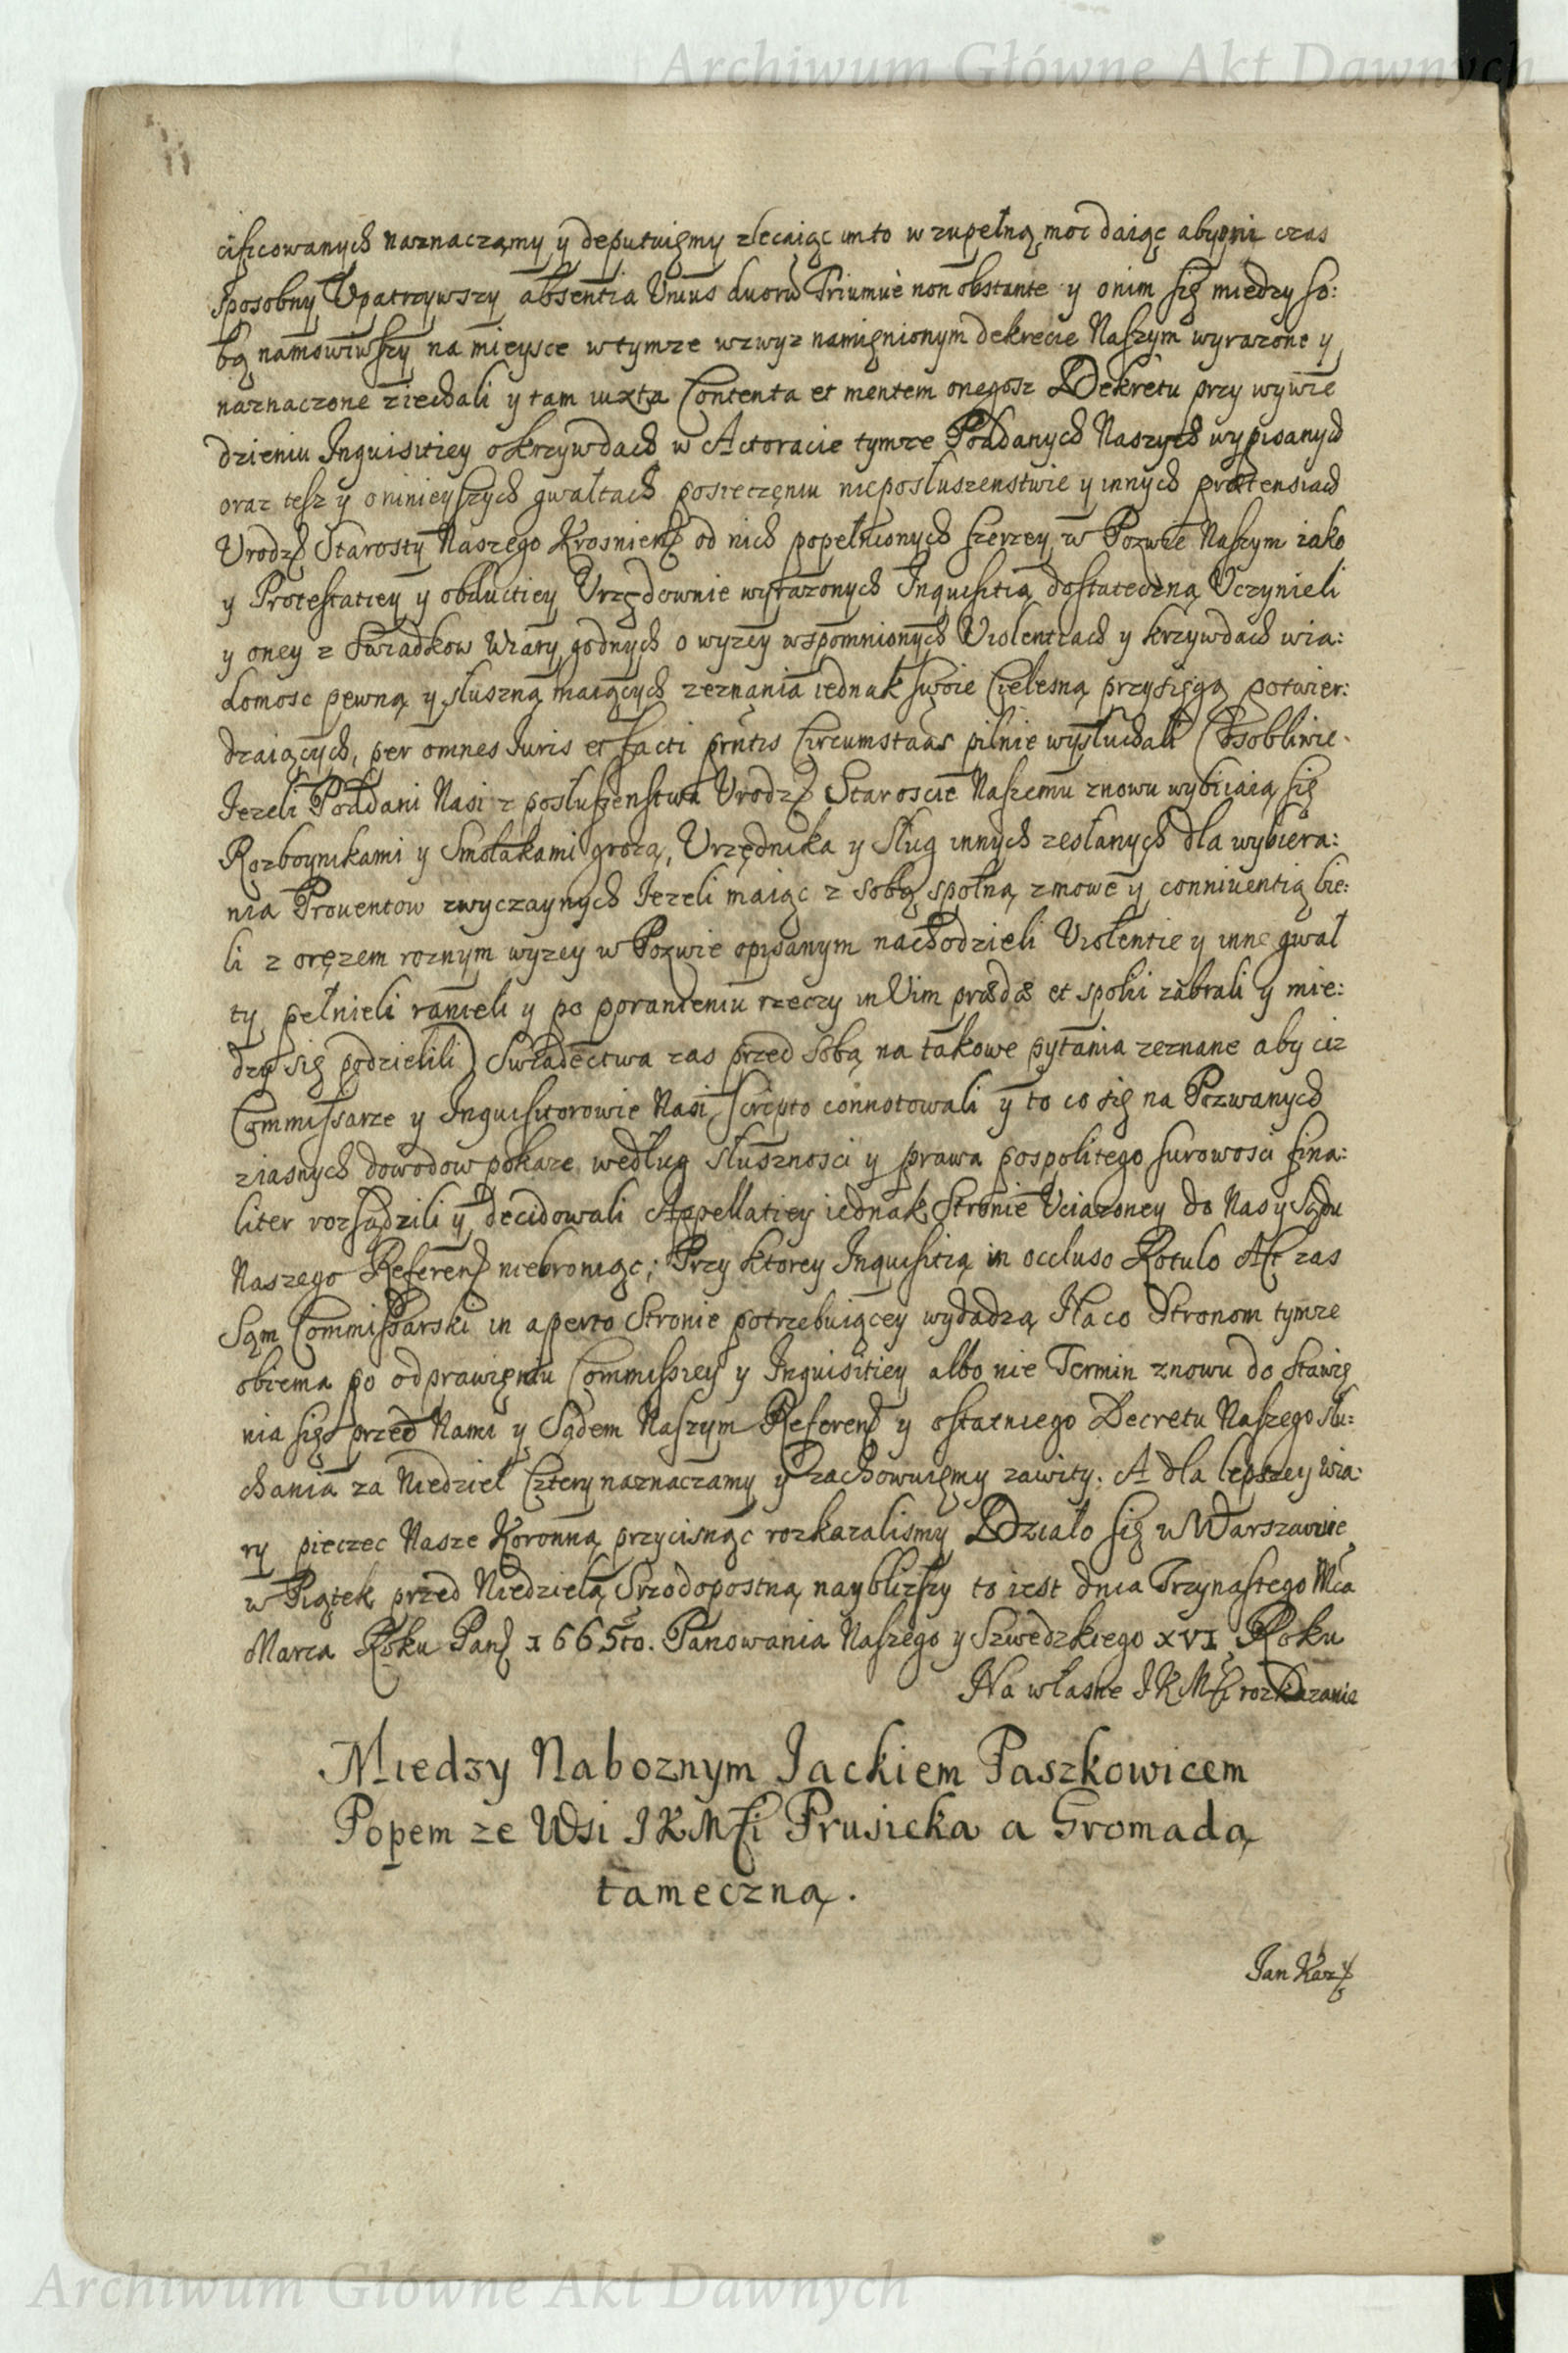 Archiwum Główne Akt Dawnych
cificowanych naznaczamy y deputuięmy zlecaiąc im to w zupełną moc daiąc aby oni czas
sposobny Upatrzywszy absentia Unius duorū Triumuè non obstante y onim się miedzy so:
bą namowiwszy na mieysce w tymze wzwyz namięnionym dekrecie Naszym wyrazone y
naznaczone ziechali y tam iuxta Contenta et mentem onegosz Dekretu przy wywie
dzieniu Inquisitiey o krzywdach w Actoracie tymze Poddanych Naszych wypisanych
oraz tesz y o ninieyszych gwałtach posieczęniu nieposłuszenstwie y innych prætensiach
Urodz Starosty Naszego Krosnien od nich popełnionych szerzey w Pozwie Naszym iako
y Protestatiey y obductiey Urzędownie wyrazonych Inquisitią dostateczną Uczynieli
y oney z Swiadkow Wiary godnych o wyzey wspomnionych Violentiach y krzywdach wia:
domosc pewną y słuszną maiących zeznania iednak swoie Cielesną przysięgą potwier:
dzaiących, per omnes Iuris et facti prntis Circumstaās pilnie wysłuchali (Osobliwie
Iezeli Poddani Nasi z posłuszenstwa Urodz Staroscie Naszemu znowu wybiiaią się
Rozboynikami y Smolakami grozą, Urzędnika y Sług innych zesłanych dla wybiera:
nia Prouentow zwyczaynych Iezeli maiąc z sobą społną zmowe y conniuentią bie:
li z oręzem roznym wyzey w Pozwie opisanym nachodzieli Violentie y inne gwał
ty pełnieli ranieli y po poranieniu rzeczy in Vim prædæ et spolii zabrali y mie:
dzy się podzielili) Swiadectwa zas przed sobą na takowe pytania zeznane aby ciz
Commissarze y Inquisitorowie Nasi scripto connotowali y to co się na Pozwanych
z iasnych dowodow pokaze według słusznosci y prawa pospolitego surowosci fina:
liter rozsądzili y decidowali Appellatiey iednak Stronie Uciązoney do Nas y Sądu
Naszego Referen niebroniąc; Przy ktorey Inquisitią in occluso Rotulo Act zas
Sąm Commissarski in aperto Stronie potrzebuiącey wydadzą Na co Stronom tymze
obiema po odprawięniu Commissiey y Inquisitiey albo nie Termin znowu do stawię
nia się przed Nami y Sądem Naszym Referen y ostatniego Decretu Naszego słu:
chania za Niedziel Cztery naznaczamy y zachowuięmy zawity. A dla lepszey wia:
ry pieczec Nasze Koronną przycisnąc rozkazalismy Działo się w Warszawie
w Piątek przed Niedzielą Srzodopostną naybliższy to iest dnia Trzynastego Mca
Marca Roku Pan 1665to. Panowania Naszego y Szwedzkiego XVI Roku
Na własne J K Mści rozkazanie
Miedzy Naboznym Jackiem Paszkowicem
Popem ze Wsi J K Mści Prusiecka a Gromadą
tameczną.
Jan Kaz
Archiwum Główne Akt Dawnych